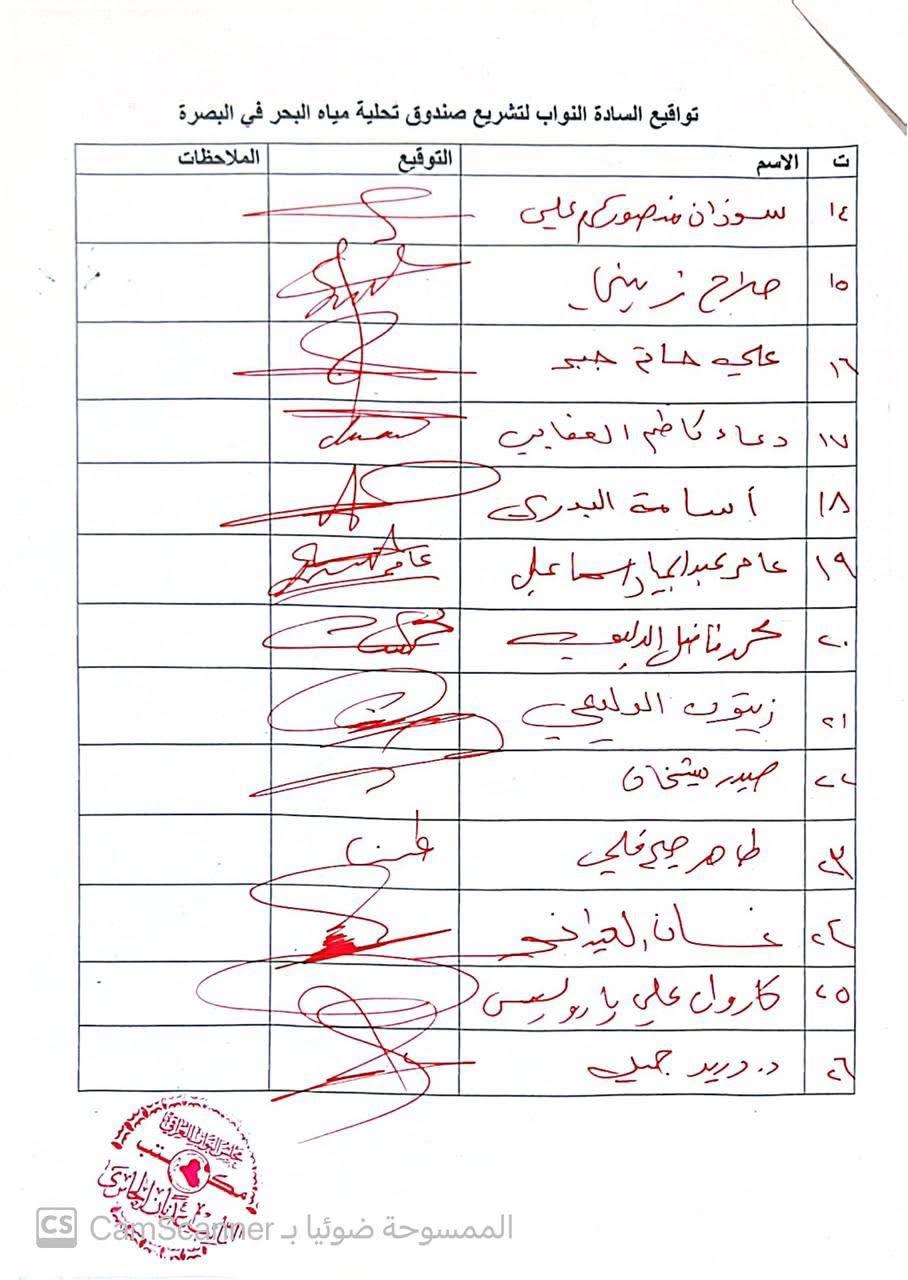 تواقيع السادة النواب لتشريع صندوق تحلية مياه البحر في البصرة
ت الاسم التوقيع الملاحظات
١٤ سوزان منصور كرم علي
١٥ صلاح زيني
١٦ علي حاتم جبر
١٧ دعاء كاظم
١٨ أسامة البدري
١٩ عامر عبدالجبار اسماعيل عامر
٢٠ محمد فاضل الدليمي
٢١ زيتون الدليمي
٢٢ حيدر شيخان
٢٣ طاهر
٢٤ غسان العيداني
٢٥ كارول علي
٢٦ د. دريد جميل
مجلس النواب العراقي
مكتب
النائب
CS CamScanner الممسوحة ضوئيا بـ